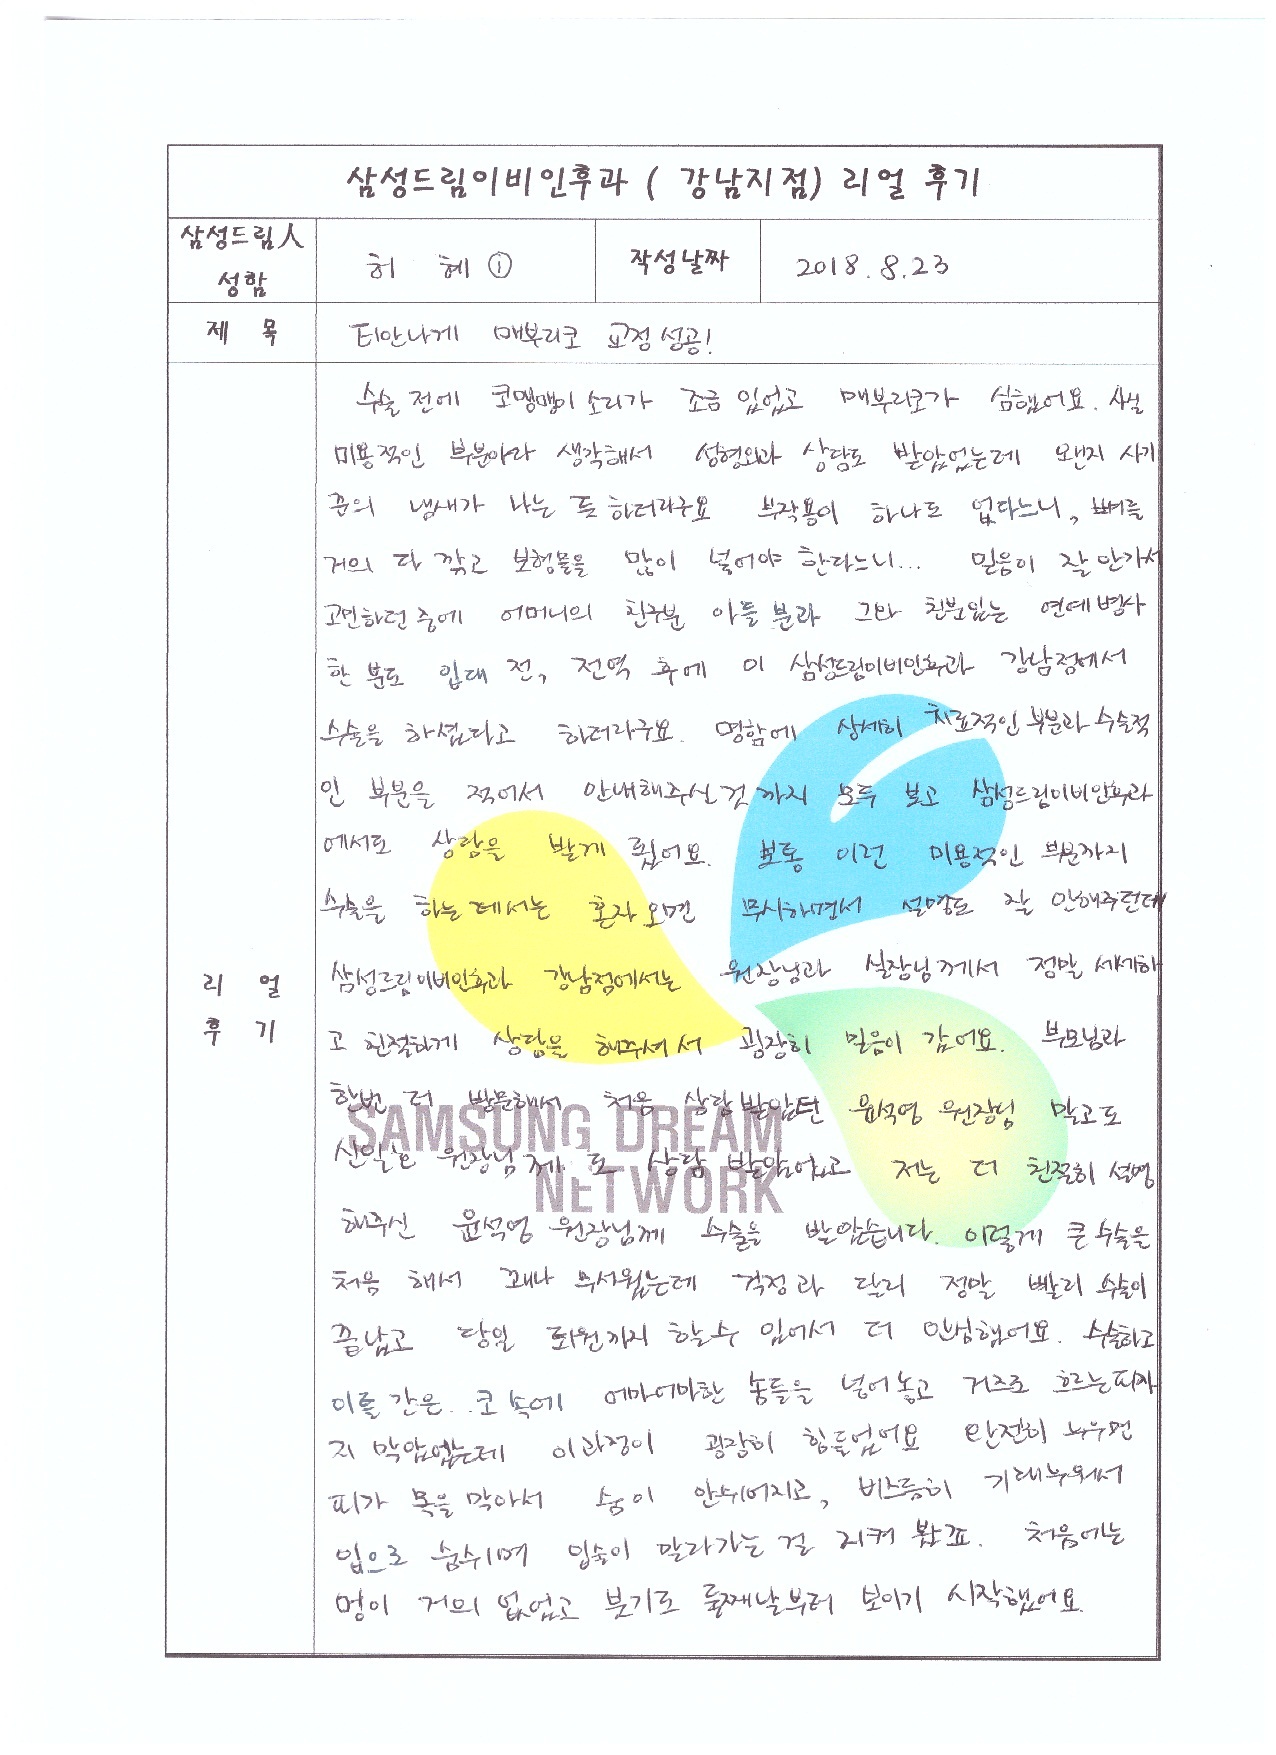 삼성드림이비인후과 ( 강남지점) 리얼 후기
삼성드림人 성함
허 혜 ①
작성날짜
2018. 8. 23
제 목
티안나게 매부리코 교정 성공!
리 얼 후 기
수술 전에 코맹맹이 소리가 조금 있었고 매부리코가 심했어요. 사실
미용적인 부분이라 생각해서 성형외과 상담도 받았었는데 왠지 사기
꾼의 냄새가 나는 듯 하더라구요 부작용이 하나도 없다느니, 뼈를
거의 다 깎고 보형물을 많이 넣어야 한다느니... 믿음이 잘 안가서
고민하던 중에 어머니의 친구분 아들 분과 그와 친분있는 연예병사
한 분도 입대 전, 전역 후에 이 삼성드림이비인후과 강남점에서
수술을 하셨다고 하더라구요. 명함에 상세히 치료적인 부분과 수술적
인 부분을 적어서 안내해주신 것 까지 모두 보고 삼성드림이비인후과
에서도 상담을 받게 됬어요. 보통 이런 미용적인 부분까지
수술을 하는 데서는 혼자 오면 무시하면서 설명도 잘 안해주던데
삼성드림이비인후과 강남점에서는 원장님과 실장님께서 정말 세세하
고 친절하게 상담을 해주셔서 굉장히 믿음이 갔어요. 부모님과
한번 더 방문해서 처음 상담 받았던 윤석영 원장님 말고도
신일호 원장님께도 상담 받았었고 저는 더 친절히 설명
해주신 윤석영 원장님께 수술을 받았습니다. 이렇게 큰 수술을
처음 해서 꽤나 무서웠는데 걱정과 달리 정말 빨리 수술이
끝났고 당일 퇴원까지 할 수 있어서 더 안심했어요. 수술하고
이틀 간은.. 코 속에 어마어마한 솜들을 넣어 놓고 거즈로 흐르는 피까
지 막았었는데 이 과정이 굉장히 힘들었어요 완전히 누우면
피가 목을 막아서 숨이 안쉬어지고, 비스듬히 기대누워서
입으로 숨쉬며 입술이 말라가는 걸 지켜 봤죠. 처음에는
멍이 거의 없었고 붓기도 둘째날부터 보이기 시작했어요.
SAMSUNG DREAM
NETWORK